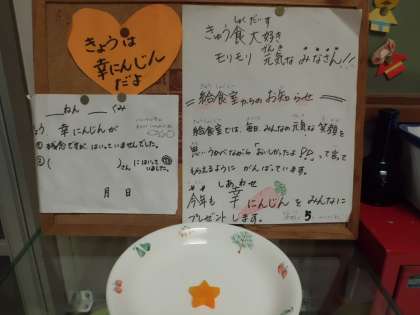 きょうは
幸にんじん
だよ
ねん くみ
幸にんじんが
① 残念ですが、はいっていませんでした。
② ( )さんにはいっていました。
月 日
きゅう食大好き
しゅくだいす
モリモリ 元気な みなさん!!
げんき
給食室からのお知らせ
給食室では、毎日みんなの元気な笑顔を
思いうかべながら「おいしかったよ!!」って言って
もらえるように がんばっています。
しあわせ
今年も 幸 にんじん を みんなに
プレゼント します。